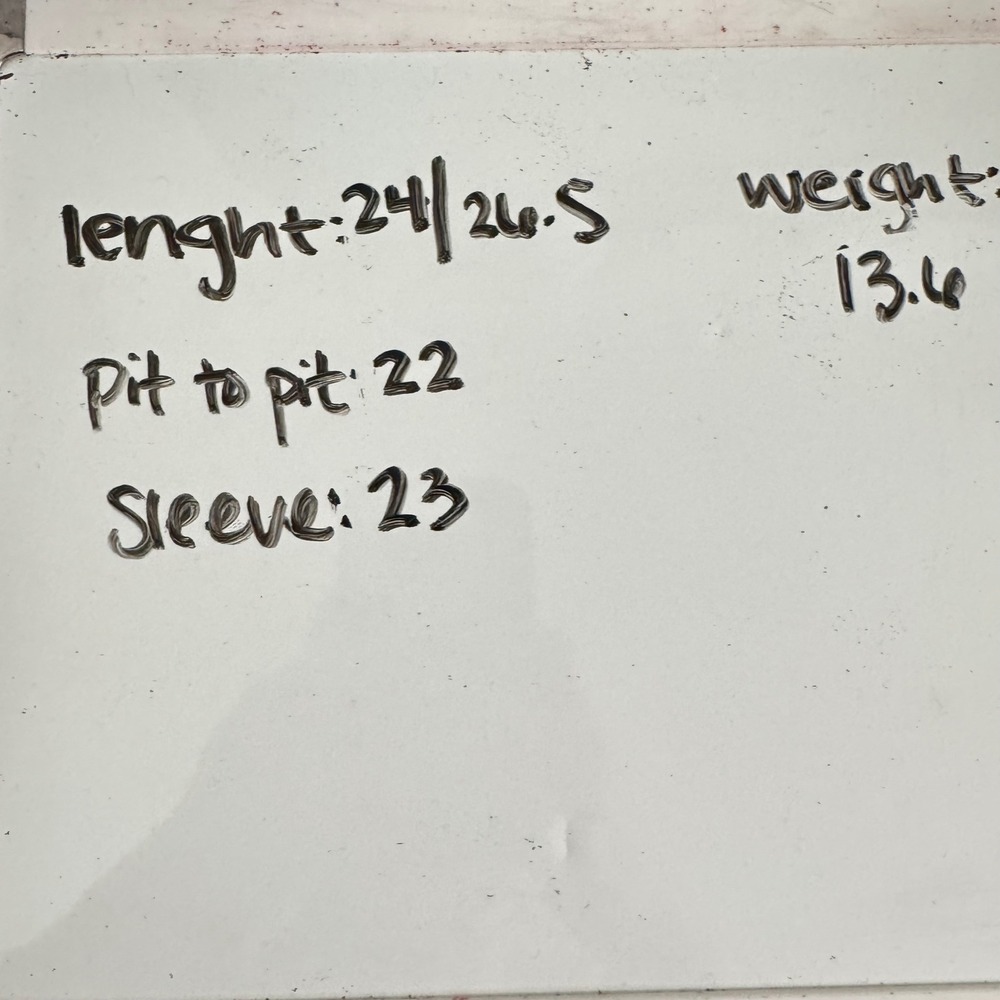 lenght: 24/26.5
weight:
13.6
Pit to pit: 22
Sleeve: 23